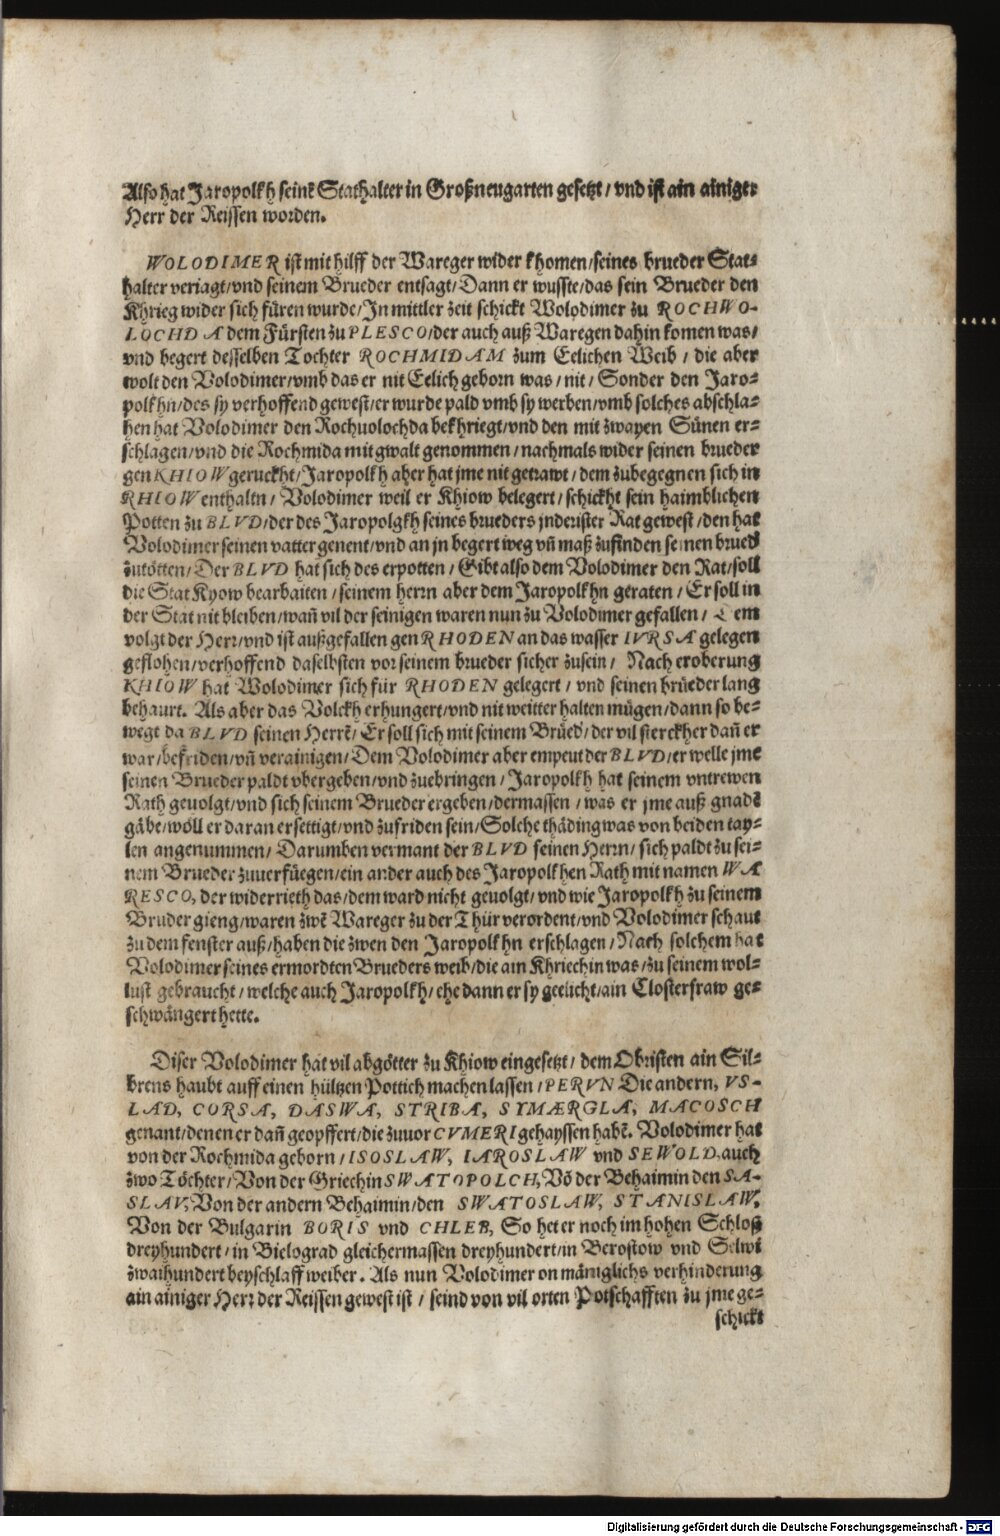 Also hat Jaropolkh seinē Stathalter in Großneugarten gesetzt / vnd ist ain ainiger
Herr der Reissen worden.
WOLODIMER ist mit hilff der Wareger wider khomen / seines brueder Stat⸗
halter veriagt / vnd seinem Brueder entsagt / Dann er wusste / das sein Brueder den
Khrieg wider sich füren wurde / In mittler zeit schickt Wolodimer zu ROCHWO-
LOCHDA dem Fürsten zu PLESCO / der auch auß Waregen dahin komen was /
vnd begert desselben Tochter ROCHMIDAM zum Eelichen Weib / die aber
wolt den Volodimer / vmb das er nit Eelich geborn was / nit / Sonder den Jaro⸗
polkhn / des sy verhoffend gewest / er wurde pald vmb sy werben / vmb solches abschla⸗
hen hat Volodimer den Rochuolochda bekhriegt / vnd den mit zwayen Sünen er⸗
schlagen / vnd die Rochmida mit gwalt genommen / nachmals wider seinen brueder
gen KHIOW geruckht / Jaropolkh aber hat jme nit getrawt / dem zubegegnen sich in
KHIOW enthaltn / Volodimer weil er Khiow belegert / schickht sein haimblichen
Potten zu BLVD / der des Jaropolgkh seines brueders jnderister Rat gewest / den hat
Volodimer seinen vatter genent / vnd an jn begert weg vñ maß zufinden seinen bruedʼ
zutötten / Der BLVD hat sich des erpotten / Gibt also dem Volodimer den Rat / soll
die Stat Kyow bearbaiten / seinem herrn aber dem Jaropolkhn geraten / Er soll in
der Stat nit bleiben / wañ vil der seinigen waren nun zu Volodimer gefallen / Dem
volgt der Herr / vnd ist außgefallen gen RHODEN an das wasser IVRSA gelegen
geflohen / verhoffend daselbsten vor seinem brueder sicher zusein / Nach eroberung
KHIOW hat Wolodimer sich für RHODEN gelegert / vnd seinen brüeder lang
behaurt. Als aber das Volckh erhungert / vnd nit weitter halten mügen / dann so be⸗
wegt da BLVD seinen Herrē / Er soll sich mit seinem Brüedʼ / der vil sterckher dañ er
war / befriden / vñ verainigen / Dem Volodimer aber empeut der BLVD / er welle jme
seinen Brueder paldt vbergeben / vnd zuebringen / Jaropolkh hat seinem vntrewen
Rath geuolgt / vnd sich seinem Brueder ergeben / dermassen / was er jme auß gnadē
gäbe / wöll er daran ersettigt / vnd zufriden sein / Solche thäding was von beiden tay⸗
len angenummen / Darumben vermant der BLVD seinen Herrn / sich paldt zu sei⸗
nem Brueder zuuerfüegen / ein ander auch des Jaropolkhen Rath mit namen WA
RESCO, der widerrieth das / dem ward nicht geuolgt / vnd wie Jaropolkh zu seinem
Bruder gieng / waren zwē Wareger zu der Thür verordent / vnd Volodimer schaut
zu dem fenster auß / haben die zwen den Jaropolkhn erschlagen / Nach solchem hat
Volodimer seines ermordten Brueders weib / die ain Khriechin was / zu seinem wol⸗
lust gebraucht / welche auch Jaropolkh / ehe dann er sy geelicht / ain Closterfraw ge⸗
schwängert hette.
Diser Volodimer hat vil abgötter zu Khiow eingesetzt / dem Obristen ain Sil⸗
brens haubt auff einen hültzen Pottich machen lassen / PERVN Die andern, VS-
LAD, CORSA, DASWA, STRIBA, SYMÆRGLA, MACOSCH
genant / denen er dañ geopffert / die zuuor CVMERI gehayssen habē. Volodimer hat
von der Rochmida geborn / ISOSLAW, IAROSLAW vnd SEWOLD, auch
zwo Töchter / Von der Griechin SWATOPOLCH, Võ der Behaimin den SA-
SLAV, Von der andern Behaimin / den SWATOSLAW, STANISLAW,
Von der Bulgarin BORIS vnd CHLEB, So het er noch im hohen Schloß
dreyhundert / in Bielograd gleichermassen dreyhundert / in Berostow vnd Selwi
zwaihundert beyschlaffweiber. Als nun Volodimer on mäniglichs verhinderung
ain ainiger Herr der Reissen gewest ist / seind von vil orten Potschafften zu jme ge⸗
schickt
Digitalisierung gefördert durch die Deutsche Forschungsgemeinschaft - DFG